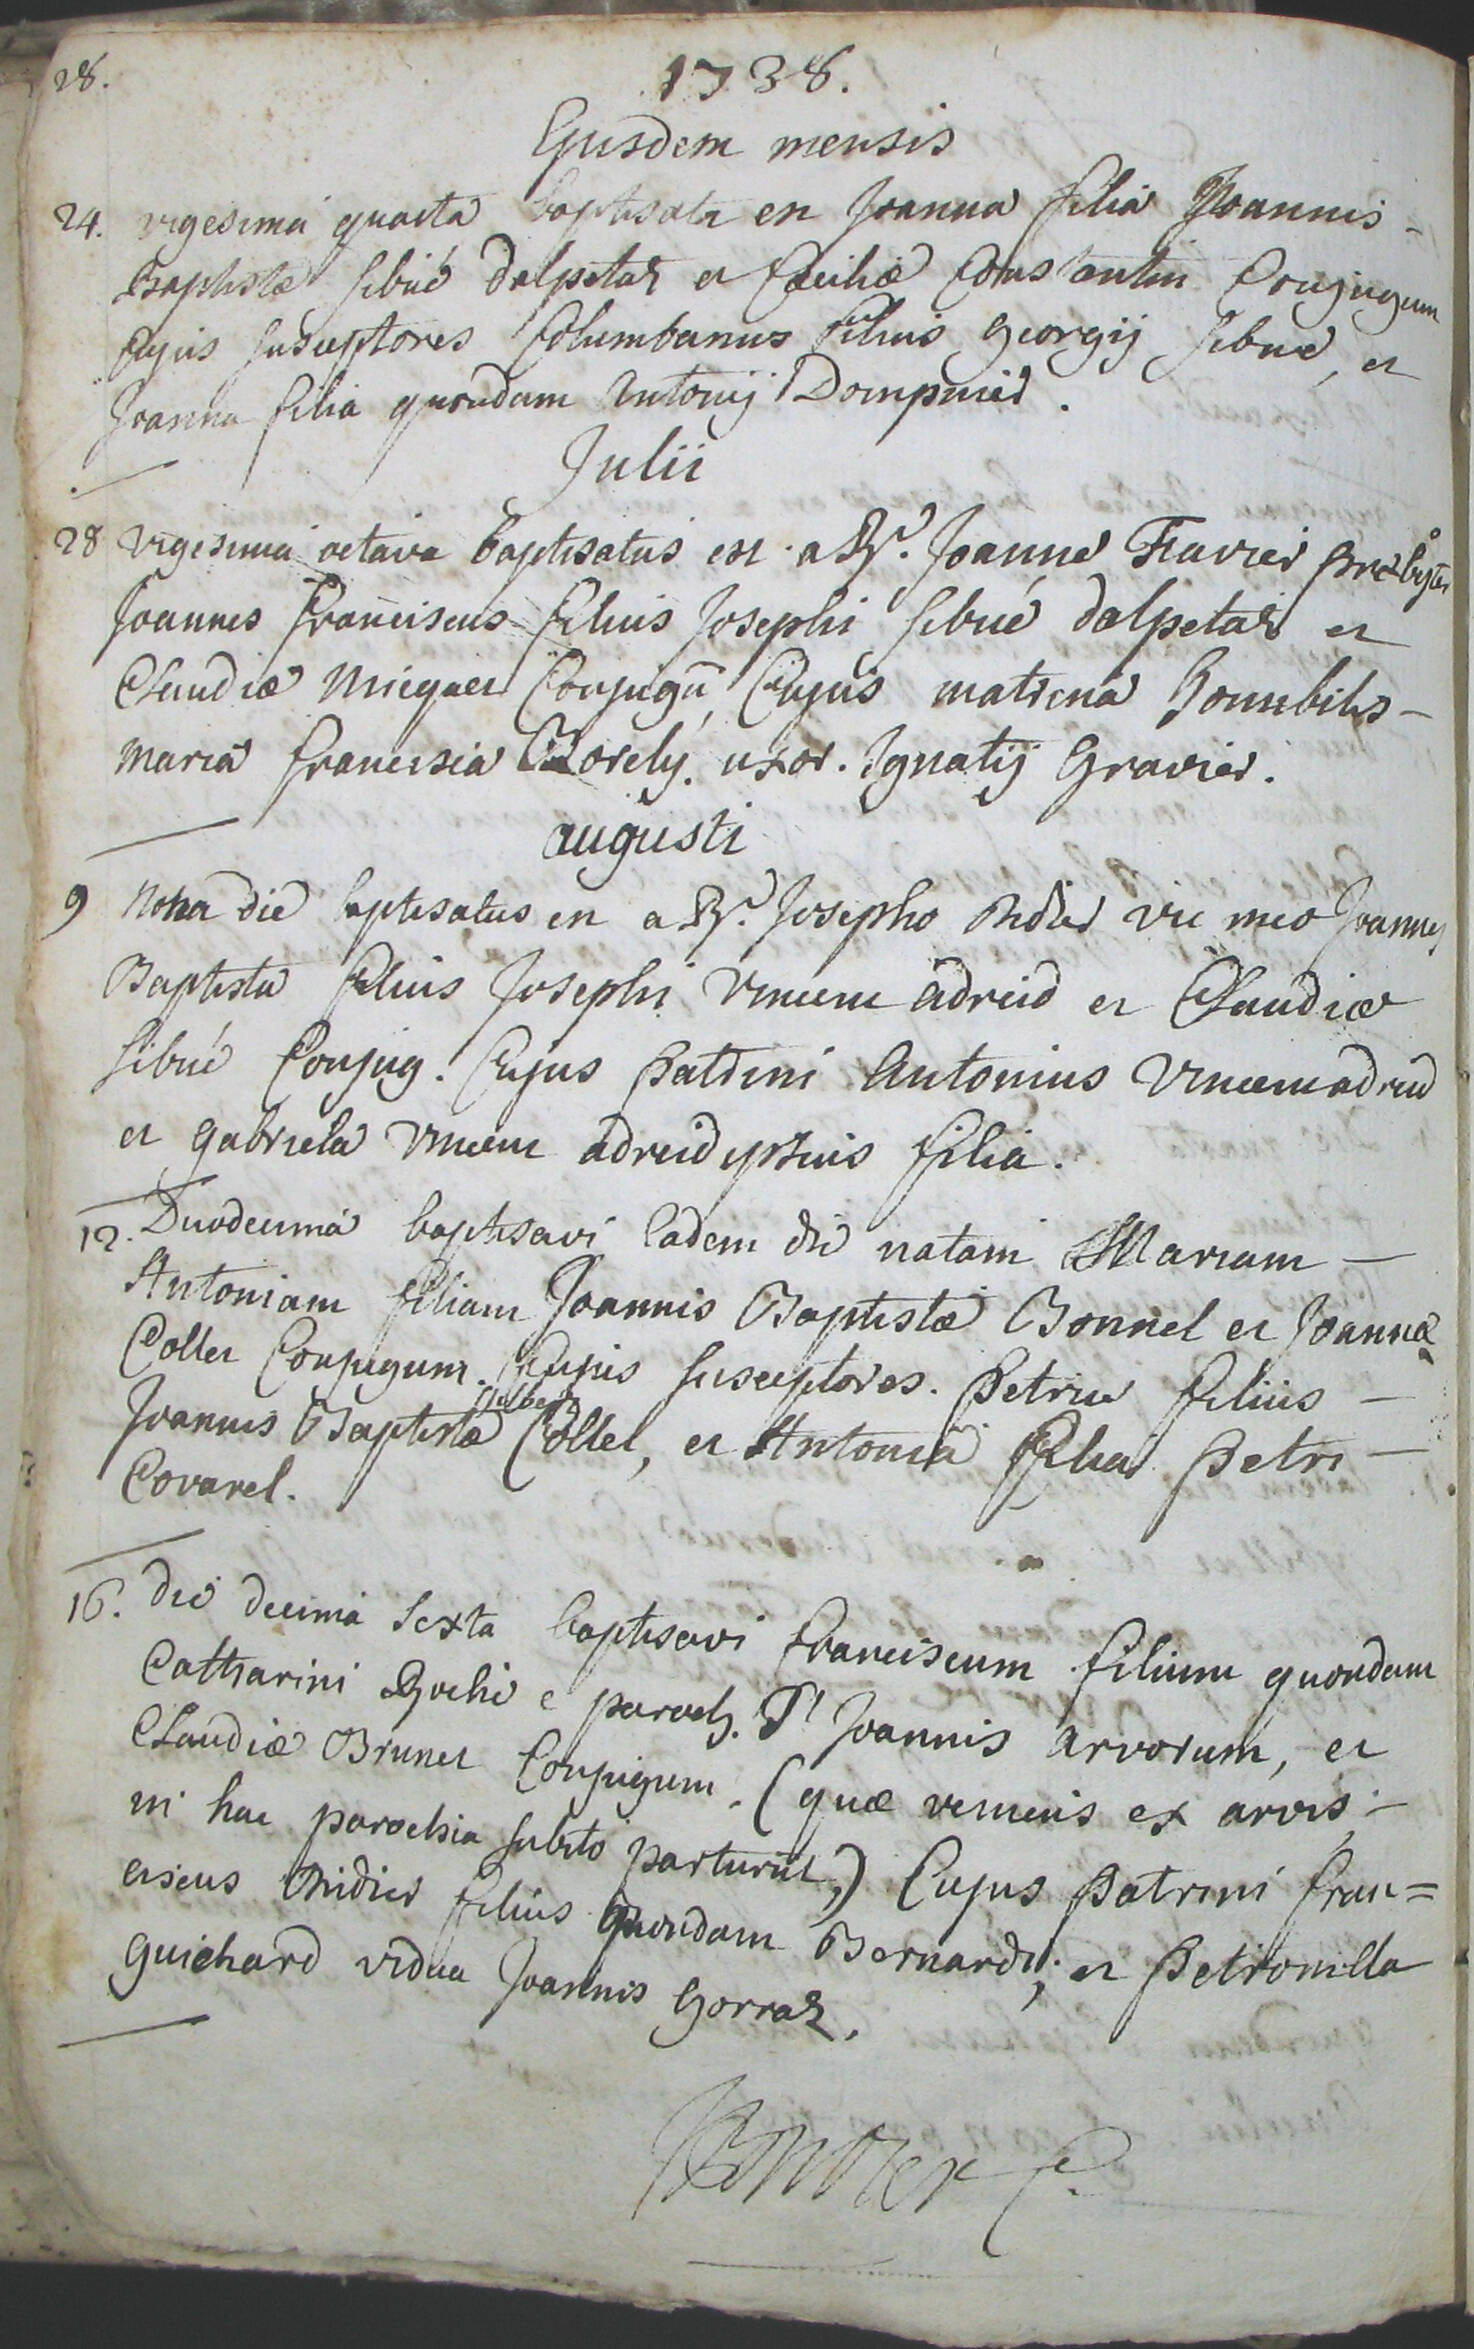 28.
1738.
Ejusdem mensis
24. vigesima quarta baptisata est Joanna filia Joannis -
Baptistæ sibué dalpetaz et Cæciliæ Constantin Conjugum
Cujus susceptores Columbanus filius Georgij sibué, et
Joanna filia quondam Antonij Dompnier.
Julii
28 vigesima octava baptisatus est a Rd. Joanne Gravier presbytero
Joannes franciscus filius Josephi sibué dalpetaz et
Claudiæ Miequer Conjugū, Cujus matrina honnbilis -
maria francisca Borely. uxor. Ignatij Gravier.
augusti
9 nona die baptisatus est a Rd. Josepho Didier vic meo Joannes
Baptista filius Josephi vincent adreid et Claudiæ
sibué Conjug. Cujus patrini Antonius vincent adreid
et gabriela vincent adreid ipsius filia.
12. Duodecima baptisavi Eadem die natam Mariam -
Antoniam filiam Joannis Baptistæ Bonnel et Joannæ
Collet Conjugum. Cujus susceptores. petrus filius -
Joannis Baptistæ Collet, et Antonia filia petri -
Covarel.
16. die decima sexta baptisavi franciscum filium quondam
Catharini e paroch. Sti Joannis arvorum, et
Claudiæ Brunet Conjugum. (quæ veniens ex arvis -
in hac parochia subito parturiit,) Cujus patrini fran=
ciscus Didier filius quondam Bernardi; et petronilla
guichard vidua Joannis Gorraz.